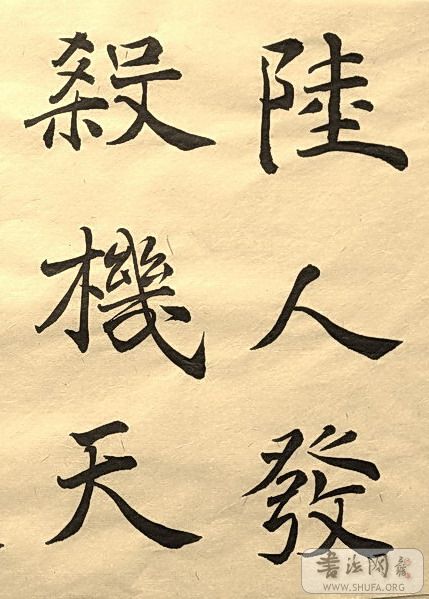 陸人發
殺機天
書法网
WWW.SHUFA.ORG